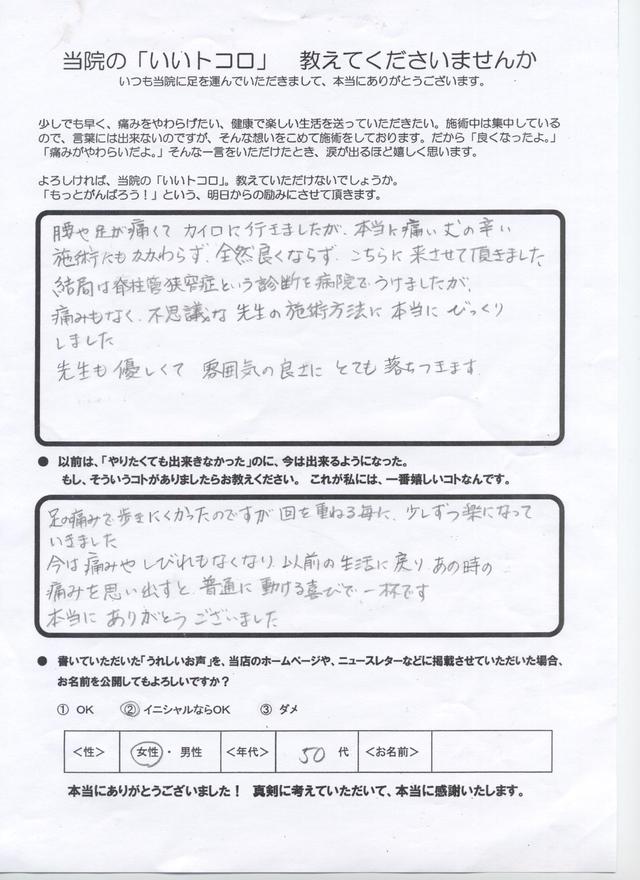 当院の「いいトコロ」　教えてくださいませんか
いつも当院に足を運んでいただきまして、本当にありがとうございます。
少しでも早く、痛みをやわらげたい、健康で楽しい生活を送っていただきたい。施術中は集中している
ので、言葉には出来ないのですが、そんな想いをこめて施術をしております。だから「良くなったよ。」
「痛みがやわらいだよ。」そんな一言をいただけたとき、涙が出るほど嬉しく思います。
よろしければ、当院の「いいトコロ」。教えていただけないでしょうか。
「もっとがんばろう！」という、明日からの励みにさせて頂きます。
腰や足が痛くて カイロに行きましたが、本当に痛い 辛い
施術にもかかわらず、全然良くならず、こちらに来させて頂きました
結局は脊柱管狭窄症という診断を病院でうけましたが、
痛みもなく、不思議な先生の施術方法に本当にびっくり
しました
先生も優しくて 雰囲気の良さに とても落ちつきます
● 以前は、「やりたくても出来きなかった」のに、今は出来るようになった。
もし、そういうコトがありましたらお教えください。 これが私には、一番嬉しいコトなんです。
足の痛みで歩きにくかったのですが 回を重ねる毎に、少しずつ楽になって
いきました
今は痛みやしびれもなくなり、以前の生活に戻り、あの時の
痛みを思い出すと、普通に動ける喜びで一杯です
本当に ありがとうございました
● 書いていただいた「うれしいお声」を、当店のホームページや、ニュースレターなどに掲載させていただいた場合、
お名前を公開してもよろしいですか？
① OK ② イニシャルならOK ③ ダメ
＜性＞ 女性 ・ 男性 ＜年代＞ 50 代 ＜お名前＞
本当にありがとうございました！ 真剣に考えていただいて、本当に感謝いたします。